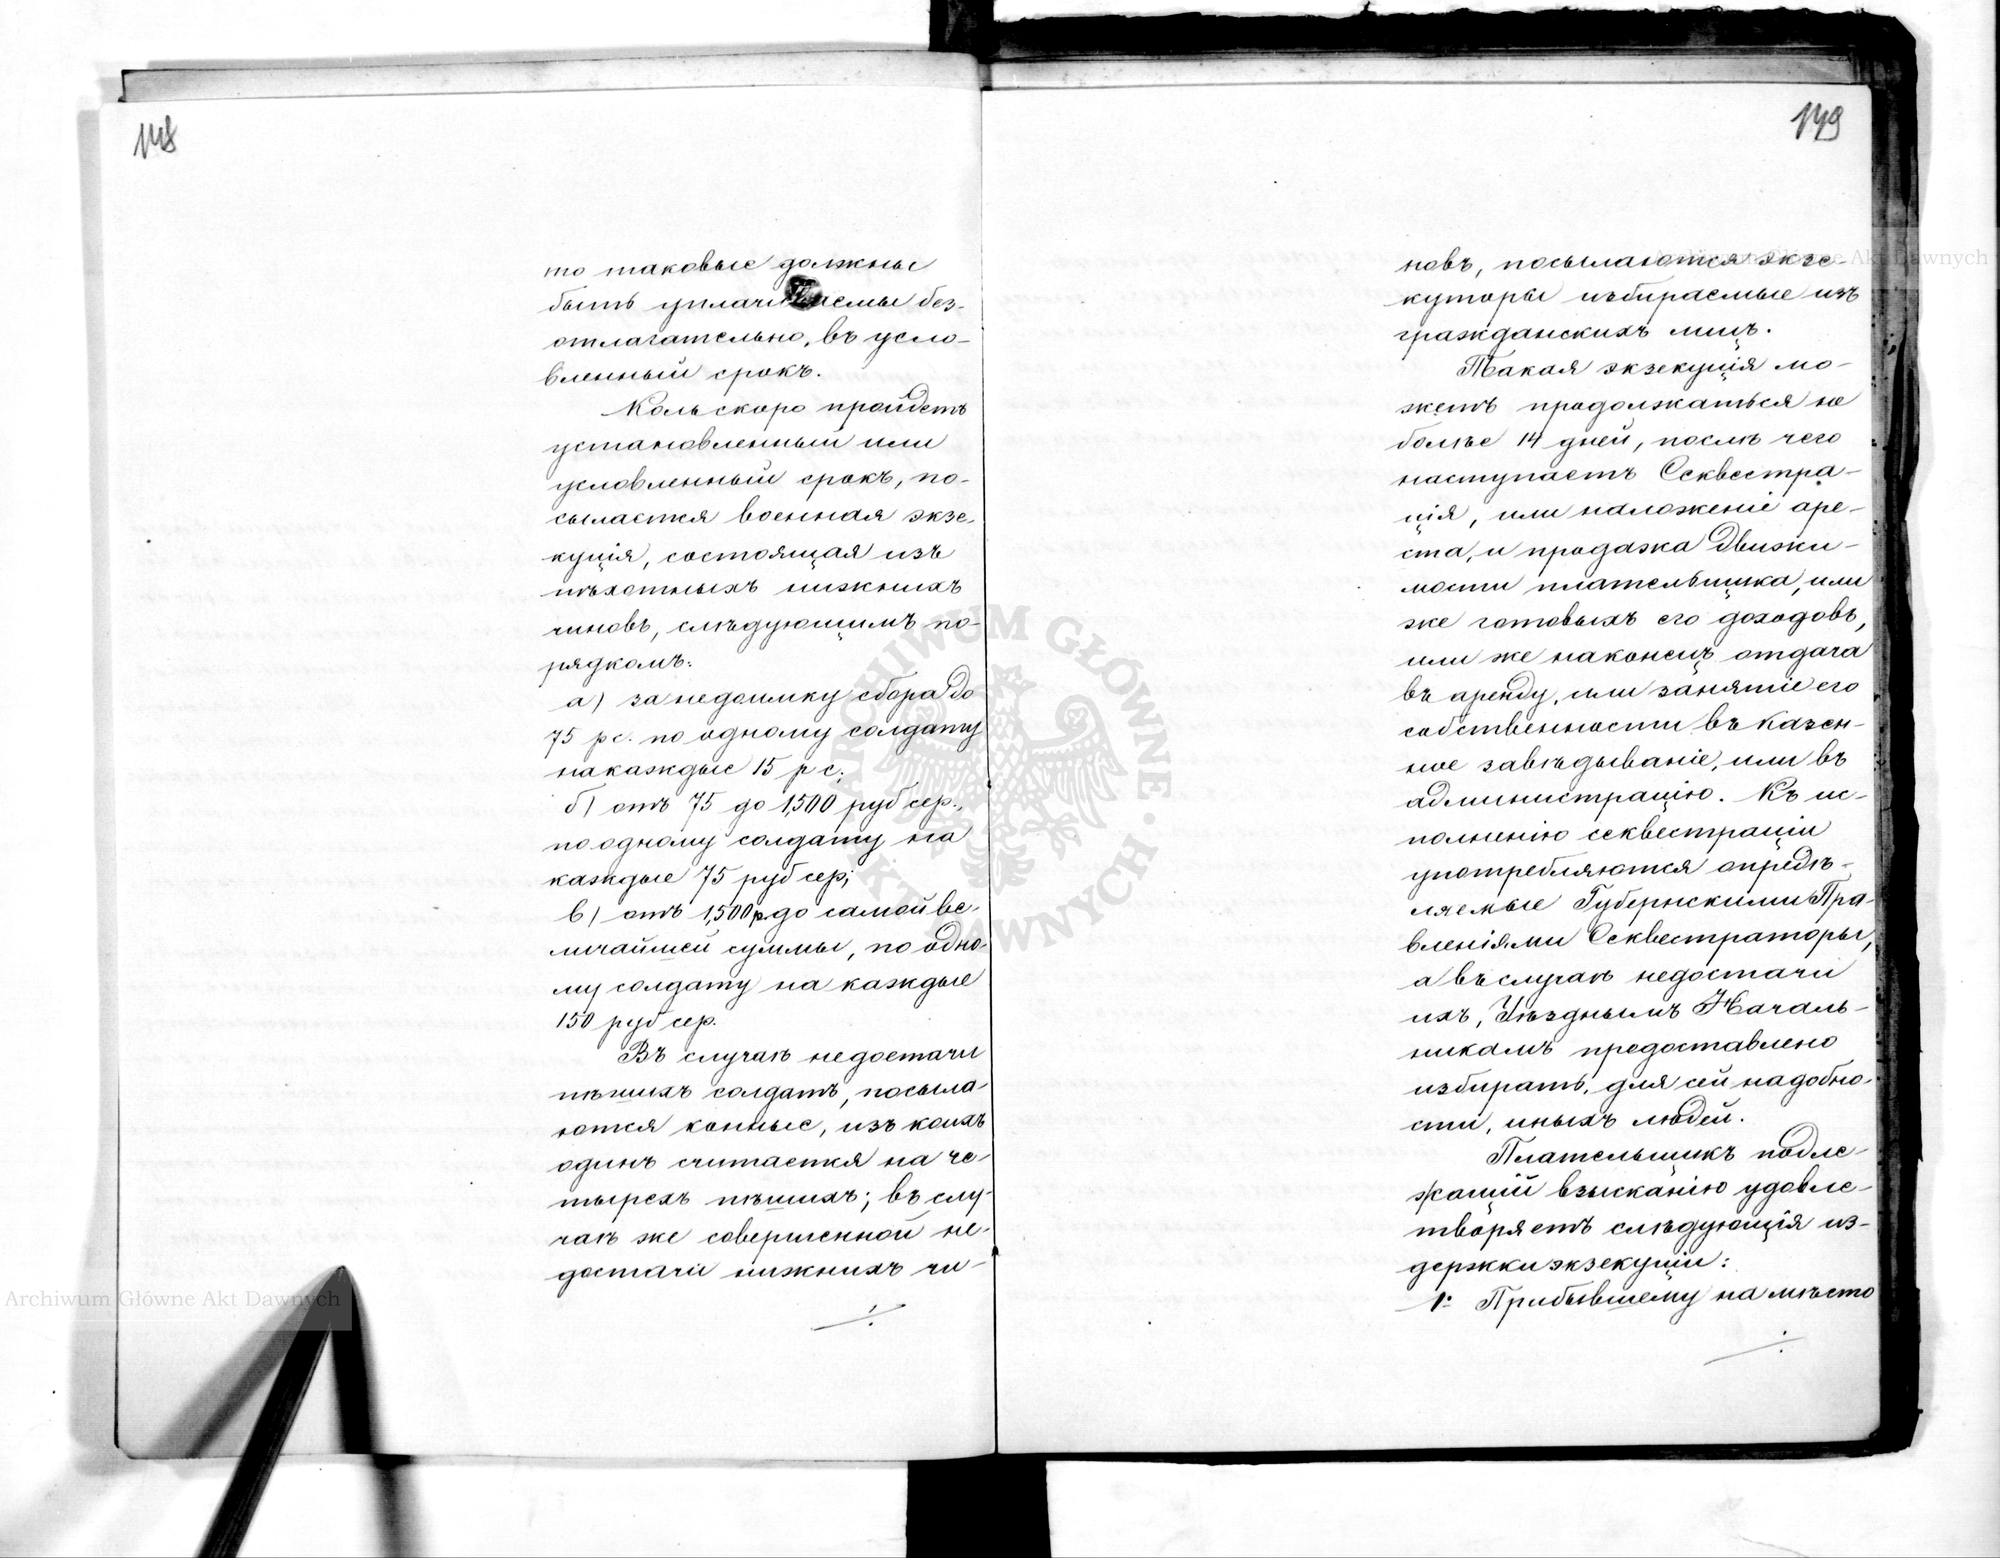 148
то таковые должны
быть уплачиваемы без-
отлагательно, въ усло-
вленный срокъ.
Коль скоро пройдетъ
установленный или
условленный срокъ, по-
сылается военная экзе-
куція, состоящая изъ
пѣхотныхъ нижнихъ
чиновъ, слѣдующимъ по-
рядкомъ:
а) за недоимку сбора до
75 р с. по одному солдату
на каждые 15 р с;
б) отъ 75 до 1,500 руб сер.,
по одному солдату на
каждые 75 руб сер;
в) отъ 1,500 р. до самой ве-
личайшей суммы, по одно-
му солдату на каждые
150 руб сер.
Въ случаѣ недостачи
пѣшихъ солдатъ, посыла-
ются конные, изъ коихъ
одинъ считается на че-
тырехъ пѣшихъ; въ слу-
чаѣ же совершенной не-
достачи нижнихъ чи-
149
новъ, посылаются экзе-
куторы избираемые изъ
гражданскихъ лицъ.
Такая экзекуція мо-
жетъ продолжаться не
болѣе 14 дней, послѣ чего
наступаетъ Секвестра-
ція, или наложеніе аре-
ста, и продажа движи-
мости плательщика, или
же готовыхъ его доходовъ,
или же наконецъ отдача
въ аренду, или занятіе его
собственности въ казен-
ное завѣдываніе, или въ
администрацію. Къ ис-
полненію секвестраціи
употребляются опредѣ-
ляемые Губернскими Пра-
вленіями Секвестраторы,
а въ случаѣ недостачи
ихъ, Уѣзднымъ Началь-
никамъ предоставлено
избирать, для сей надобно-
сти, иныхъ людей.
Плательщикъ подле-
жащій взысканію удовле-
творяетъ слѣдующія из-
держки экзекуціи:
1. Прибывшему на мѣсто
Archiwum Główne Akt Dawnych
Archiwum Główne Akt Dawnych
ARCHIWUM GŁÓWNE AKT DAWNYCH